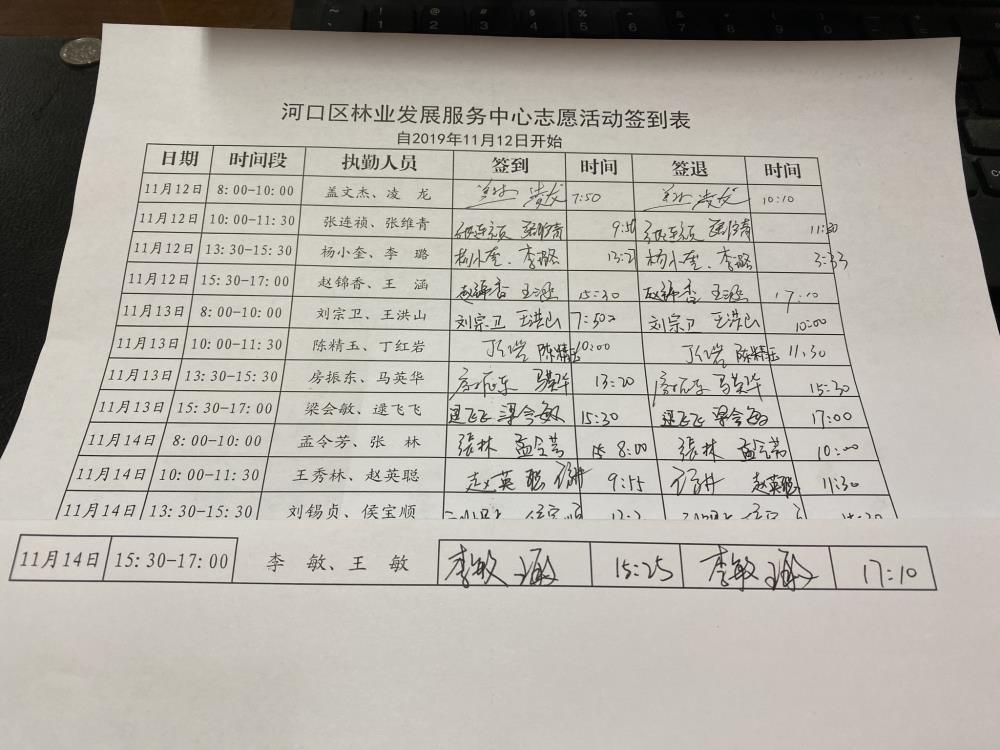 河口区林业发展服务中心志愿活动签到表
自2019年11月12日开始
日期 时间段 执勤人员 签到 时间 签退 时间
11月12日 8:00-10:00 盖文杰、凌 龙 凌龙 7:50 凌龙 10:10
11月12日 10:00-11:30 张连祯、张维青 张连祯 张维青 张连祯 张维青
11月12日 13:30-15:30 杨小奎、李 璐 杨小奎、李璐 杨小奎、李璐 3:33
11月12日 15:30-17:00 赵锦香、王 涵 赵锦香 王涵 15:30 赵锦香 王涵 17:10
11月13日 8:00-10:00 刘宗卫、王洪山 刘宗卫 王洪山 7:50 刘宗卫 王洪山 10:00
11月13日 10:00-11:30 陈精玉、丁红岩 丁红岩 陈精玉 10:00 丁红岩 陈精玉 11:30
11月13日 13:30-15:30 房振东、马英华 房振东 马英华 13:20 房振东 马英华 15:30
11月13日 15:30-17:00 梁会敏、逯飞飞 逯飞飞 梁会敏 15:30 逯飞飞 梁会敏 17:00
11月14日 8:00-10:00 孟令芳、张 林 張林 孟令芳 8:00 張林 孟令芳 10:00
11月14日 10:00-11:30 王秀林、赵英聪 赵英聪 9:55 赵英聪 11:30
11月14日 13:30-15:30 刘锡贞、侯宝顺
11月14日 15:30-17:00 李 敏、王 敏 李敏 王敏 15:25 李敏 王敏 17:10